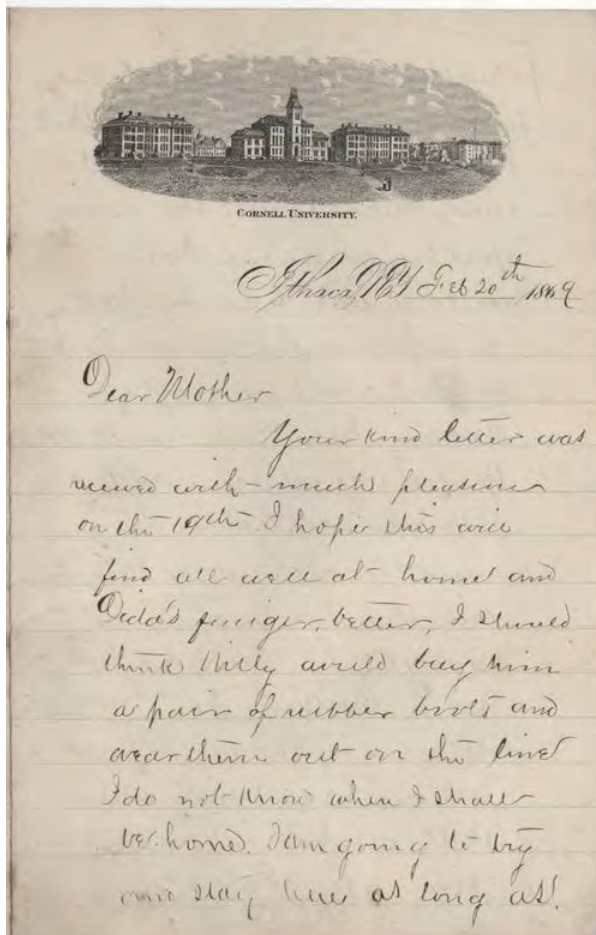 CORNELL UNIVERSITY.
Ithaca, N.Y. Feb 20th 1869
Dear Mother
Your kind letter was
recieved with much pleasure
on the 19th I hope this will
find all well at home and
finger, better, I should
think Willy would buy him
a pair of rubber boots and
wear them out on the line
I do not know when I shall
be home. I am going to try
and stay here as long as